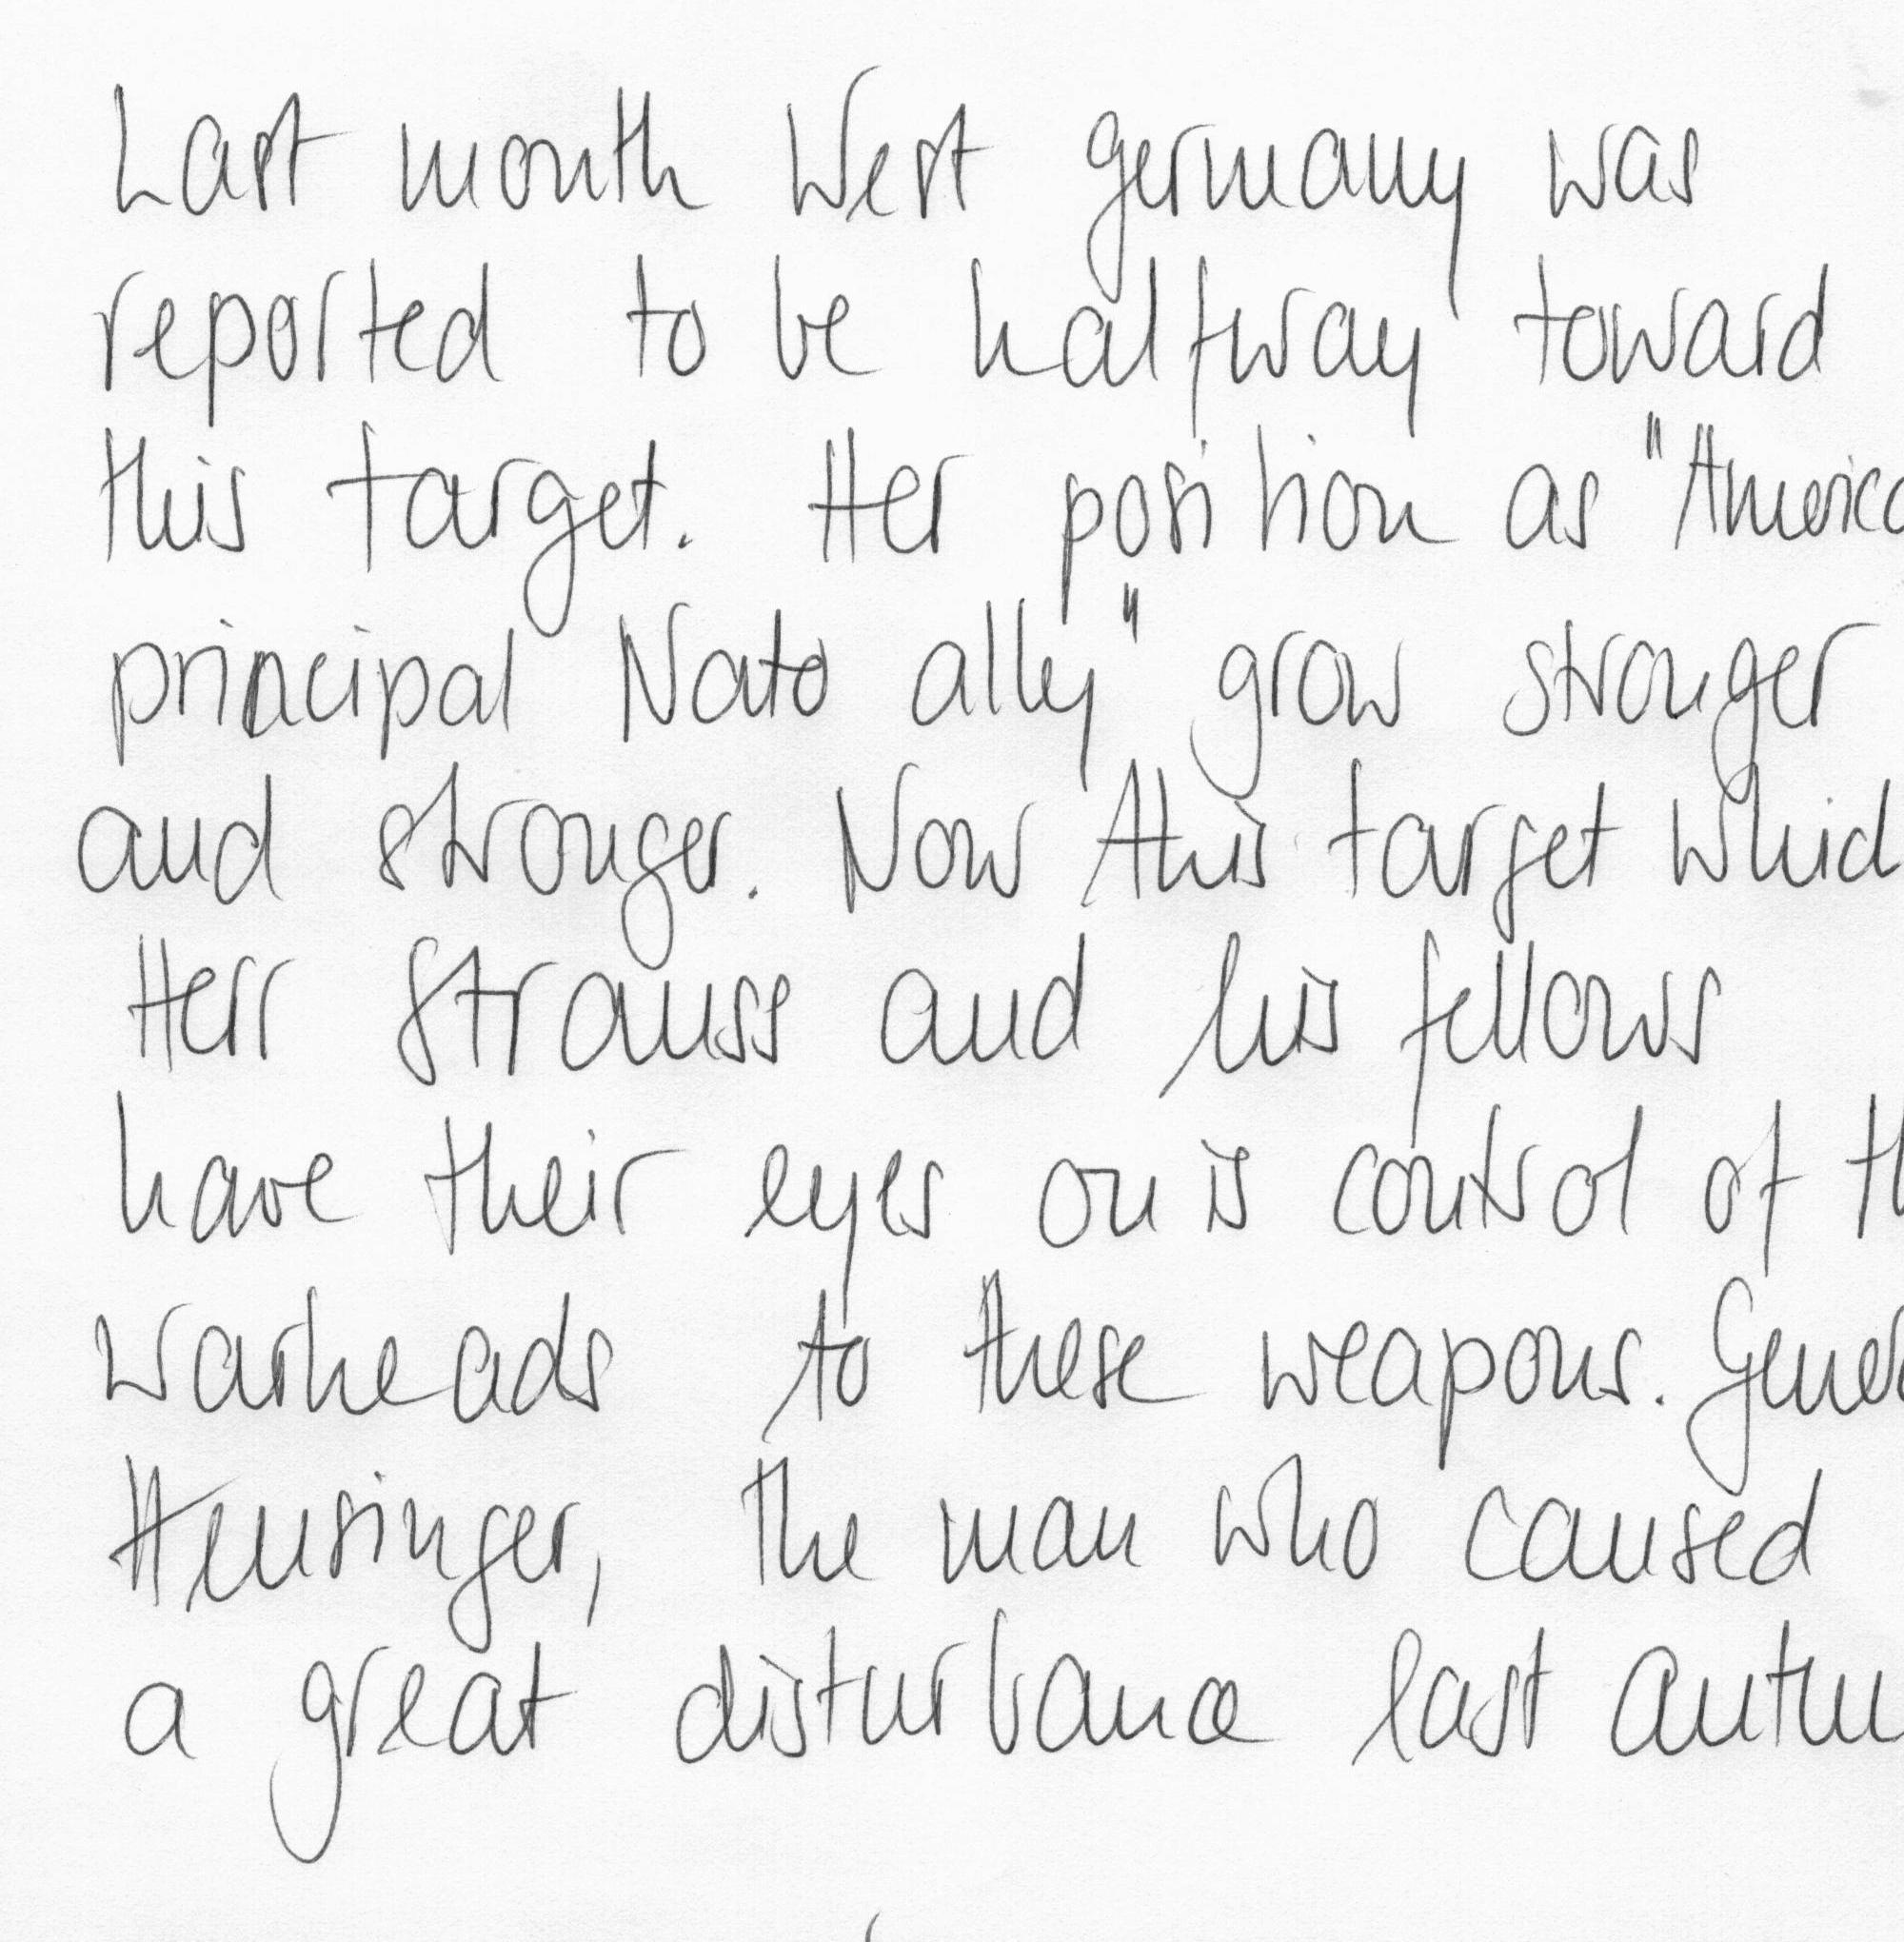 Last month West Germany was
reported to be halfway toward
this target. Her position as "America
principal Nato ally" grow stronger
and stronger. Now this target which
Herr Strauss and his fellows
have their eyes on is control of th
warheads to these weapons. Gener
Heusinger, the man who caused
a great disturbance last autu